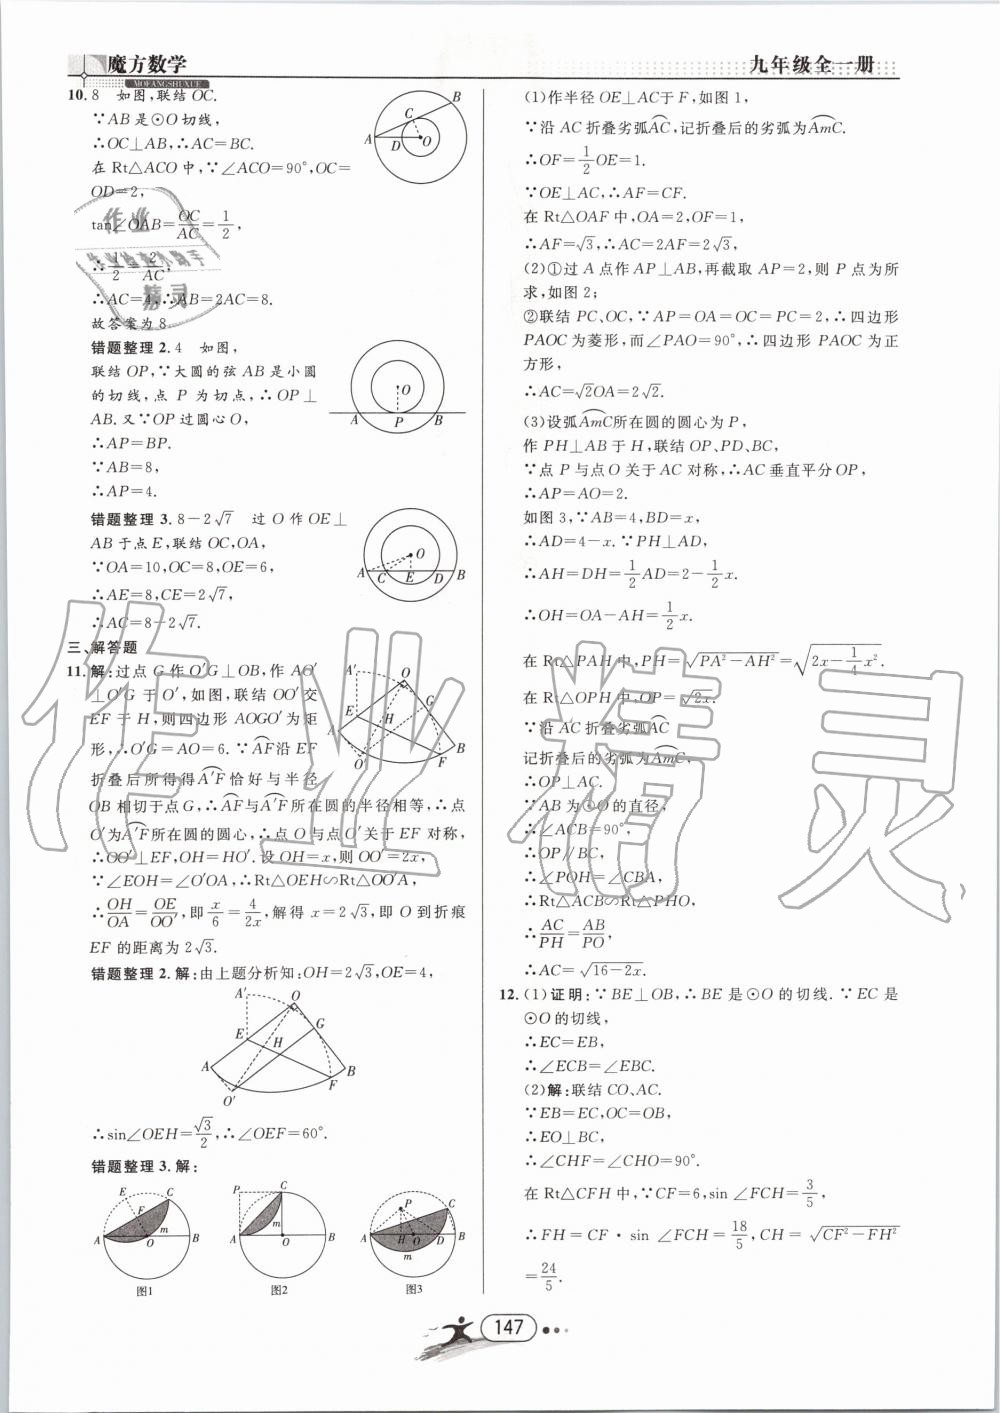 魔方数学
MOFANGSHUXUE
九年级全一册
10.8 如图,联结OC.
∵AB是⊙O切线,
∴OC⊥AB,∴AC=BC.
在Rt△ACO中,∵∠ACO=90°,OC=
OD=2,
tan∠OAB=OC/AC=1/2,
∴1/2=2/AC,
∴AC=4,∴AB=2AC=8.
故答案为8
错题整理2.4 如图,
联结OP,∵大圆的弦AB是小圆
的切线,点P为切点,∴OP⊥
AB.又∵OP过圆心O,
∴AP=BP.
∵AB=8,
∴AP=4.
错题整理3.8-2√7 过O作OE⊥
AB于点E,联结OC,OA,
∵OA=10,OC=8,OE=6,
∴AE=8,CE=2√7,
∴AC=8-2√7.
三、解答题
11.解:过点G作O′G⊥OB,作AO′
⊥O′G于O′,如图,联结OO′交
EF于H,则四边形AOGO′为矩
形,∴O′G=AO=6.∵A͡F沿EF
折叠后所得得A͡′F恰好与半径
OB相切于点G,∴A͡F与A͡′F所在圆的半径相等,∴点
O′为A͡′F所在圆的圆心,∴点O与点O′关于EF对称,
∴OO′⊥EF,OH=HO′.设OH=x,则OO′=2x,
∵∠EOH=∠O′OA,∴Rt△OEH∽Rt△OO′A,
∴OH/OA=OE/OO′,即x/6=4/2x,解得x=2√3,即O到折痕
EF的距离为2√3.
错题整理2.解:由上题分析知:OH=2√3,OE=4,
∴sin∠OEH=√3/2,∴∠OEF=60°.
错题整理3.解:
图1 图2 图3
(1)作半径OE⊥AC于F,如图1,
∵沿AC折叠劣弧A͡C,记折叠后的劣弧为A͡mC.
∴OF=1/2OE=1.
∵OE⊥AC,∴AF=CF.
在Rt△OAF中,OA=2,OF=1,
∴AF=√3,∴AC=2AF=2√3,
(2)①过A点作AP⊥AB,再截取AP=2,则P点为所
求,如图2;
②联结PC,OC,∵AP=OA=OC=PC=2,∴四边形
PAOC为菱形,而∠PAO=90°,∴四边形PAOC为正
方形,
∴AC=√2OA=2√2.
(3)设弧A͡mC所在圆的圆心为P,
作PH⊥AB于H,联结OP,PD,BC,
∵点P与点O关于AC对称,∴AC垂直平分OP,
∴AP=AO=2.
如图3,∵AB=4,BD=x,
∴AD=4-x.∵PH⊥AD,
∴AH=DH=1/2AD=2-1/2x.
∴OH=OA-AH=1/2x.
在Rt△PAH中,PH=√(PA²-AH²)=√(2x-1/4x²).
在Rt△OPH中,OP=√2x.
∵沿AC折叠劣弧A͡C
记折叠后的劣弧为A͡mC,
∴OP⊥AC.
∵AB为⊙O的直径,
∴∠ACB=90°,
∴OP∥BC,
∴∠POH=∠CBA,
∴Rt△ACB∽Rt△PHO,
∴AC/PH=AB/PO,
∴AC=√(16-2x).
12.(1)证明:∵BE⊥OB,∴BE是⊙O的切线.∵EC是
⊙O的切线,
∴EC=EB,
∴∠ECB=∠EBC.
(2)解:联结CO,AC.
∵EB=EC,OC=OB,
∴EO⊥BC,
∴∠CHF=∠CHO=90°.
在Rt△CFH中,∵CF=6,sin∠FCH=3/5,
∴FH=CF·sin∠FCH=18/5,CH=√(CF²-FH²)
=24/5.
147
作业精灵